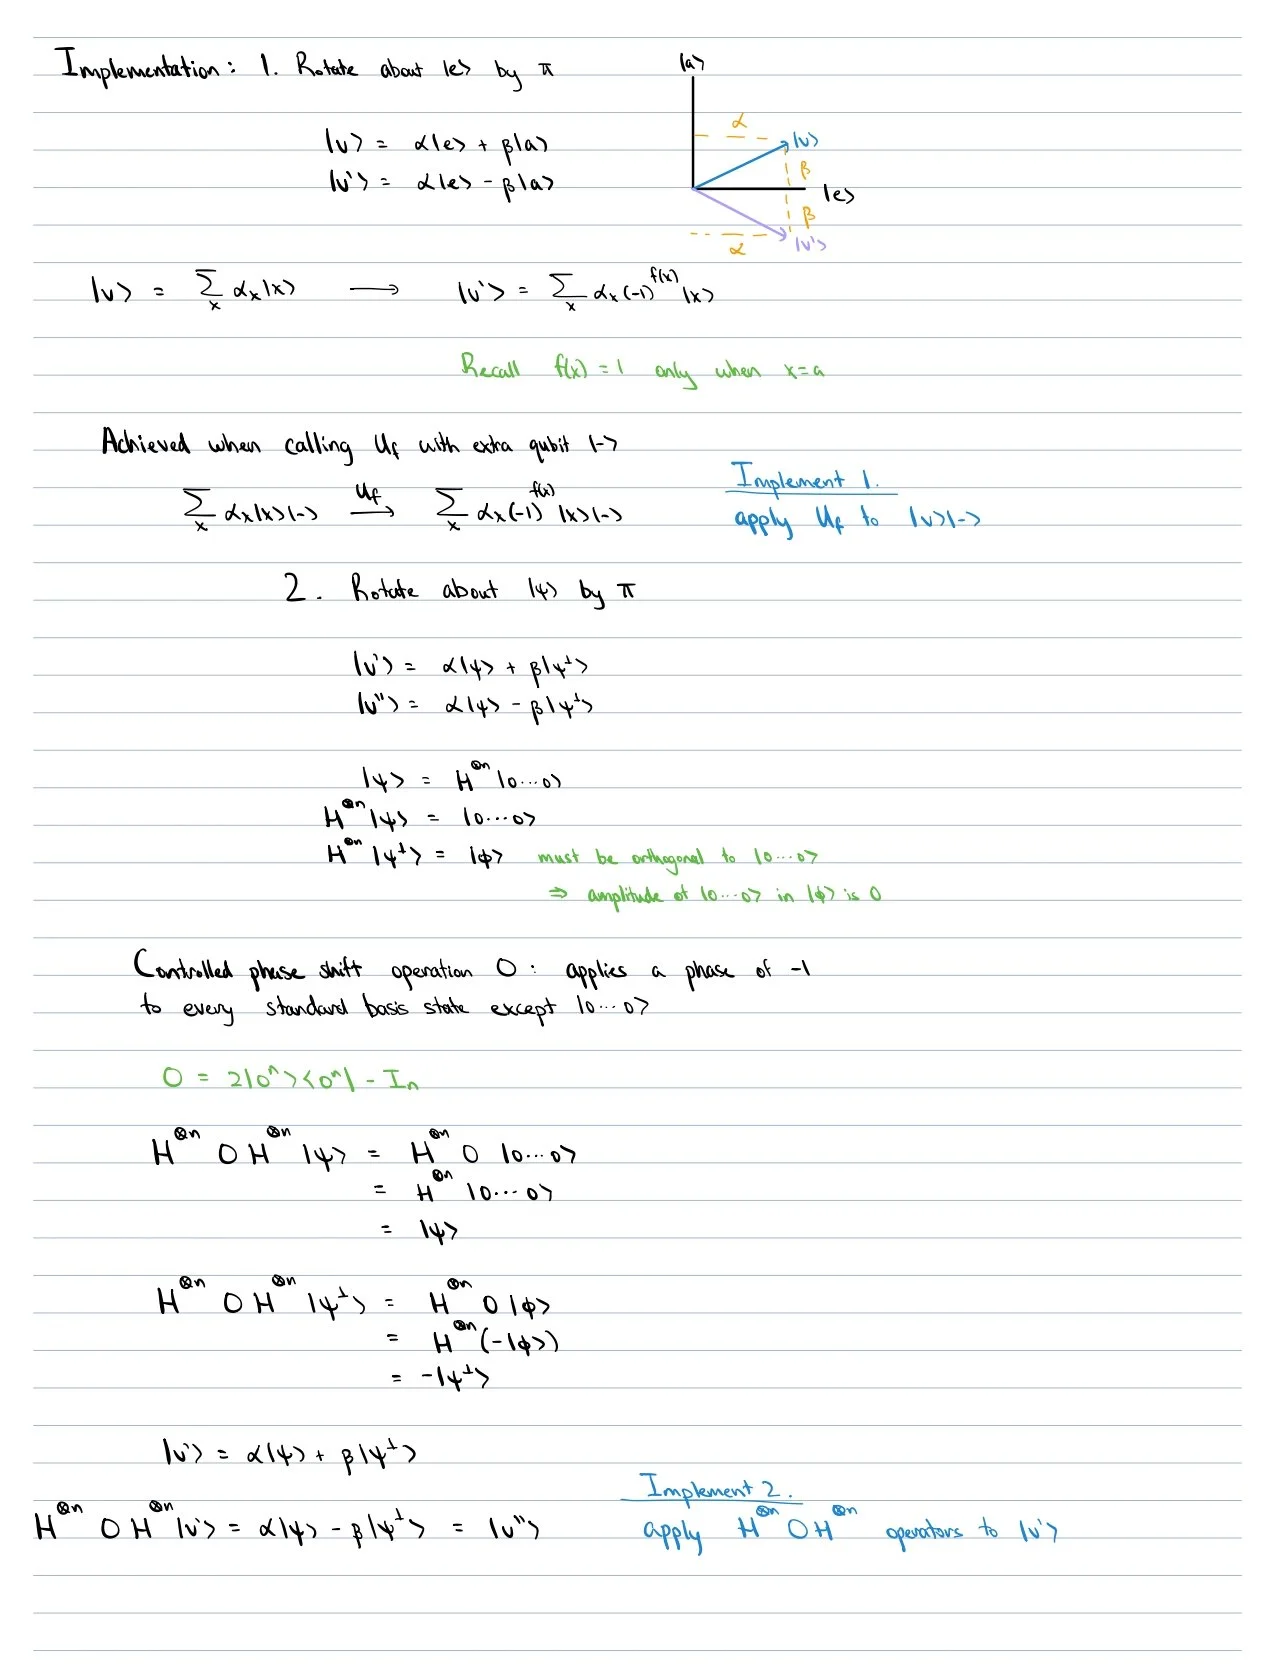 Implementation: 1. Rotate about |e> by π
|a>
|v> = α|e> + β|a>
|v'> = α|e> - β|a>
α
|v>
β
|e>
β
α
|v'>
|v> = ∑ₓ αₓ|x> ⟶ |v'> = ∑ₓ αₓ(-1)^f(x) |x>
Recall f(x) = 1 only when x=a
Achieved when calling U_f with extra qubit |->
∑ₓ αₓ|x>|-> U_f⟶ ∑ₓ αₓ(-1)^f(x) |x>|->
Implement 1.
apply U_f to |v>|->
2. Rotate about |ψ> by π
|v'> = α|ψ> + β|ψ^⊥>
|v''> = α|ψ> - β|ψ^⊥>
|ψ> = H^⊗n |0...0>
H^⊗n |ψ> = |0...0>
H^⊗n |ψ^⊥> = |ϕ> must be orthogonal to |0...0>
⇒ amplitude of |0...0> in |ϕ> is 0
Controlled phase shift operation O : applies a phase of -1
to every standard basis state except |0...0>
O = 2|0^n><0^n| - I_n
H^⊗n O H^⊗n |ψ> = H^⊗n O |0...0>
= H^⊗n |0...0>
= |ψ>
H^⊗n O H^⊗n |ψ^⊥> = H^⊗n O |ϕ>
= H^⊗n (-|ϕ>)
= -|ψ^⊥>
|v'> = α|ψ> + β|ψ^⊥>
H^⊗n O H^⊗n |v'> = α|ψ> - β|ψ^⊥> = |v''>
Implement 2.
apply H^⊗n O H^⊗n operators to |v'>